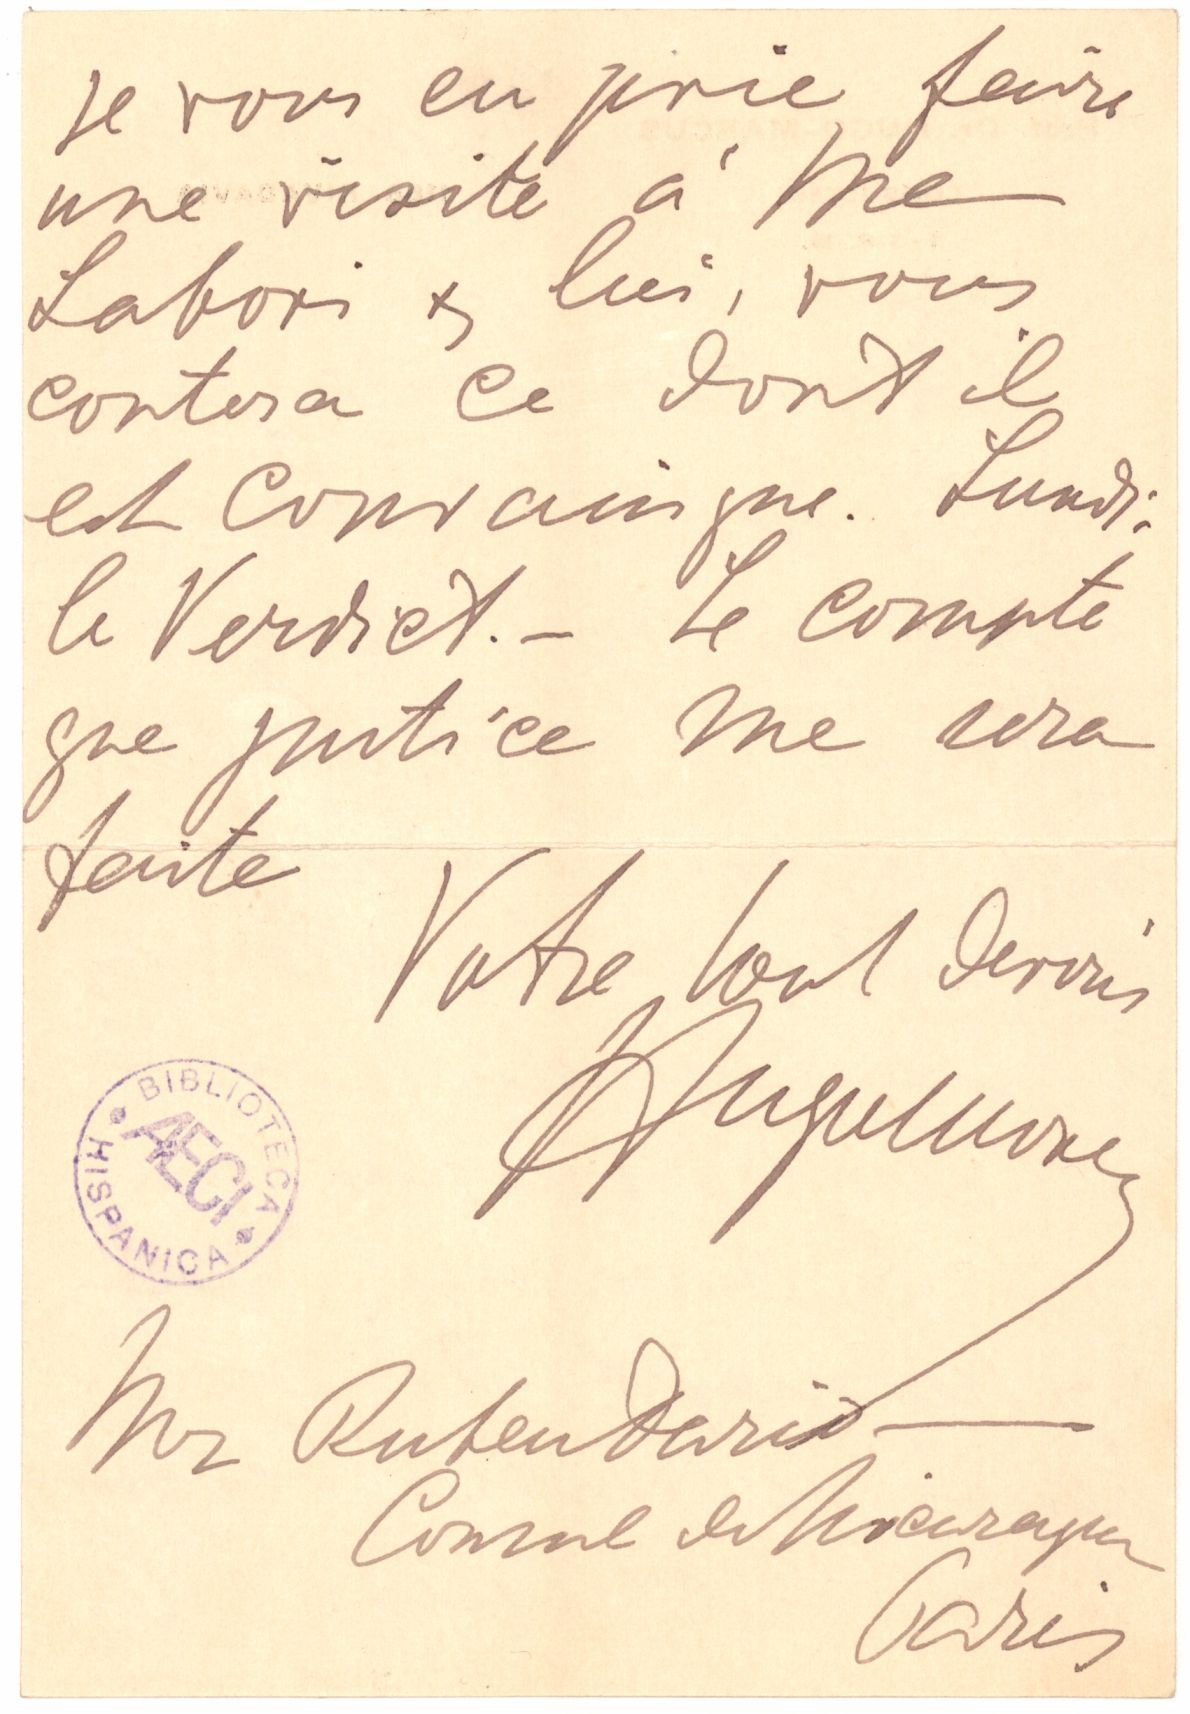 Je vous en prie faire
une visite à Me
Labori & lui, vous
contera ce dont il
est convainque. Lundi:
le Verdict. – Je compte
que justice me sera
faite
Votre tout
BIBLIOTECA
AECI
HISPANICA
Mr Ruben Dario
Consul de Nicaragua
Paris